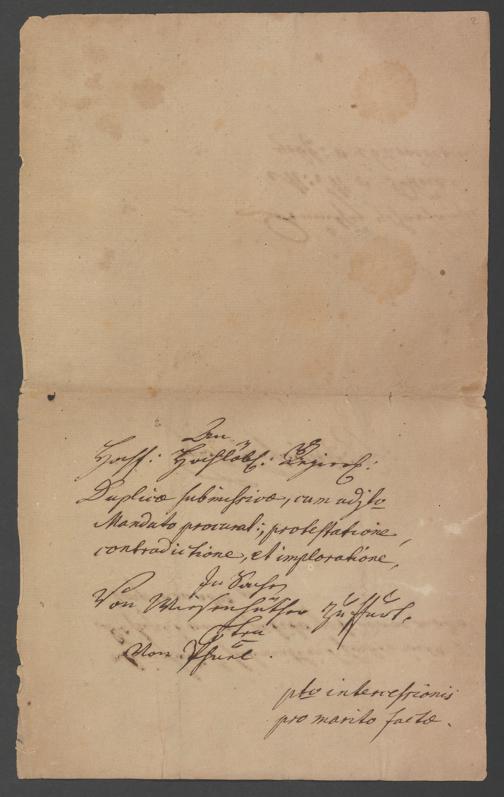 2
Den
Hochf: Hochlöbl:
Duplicæ submissivæ, cum adjto
Mandato procurat:, protestatione,
contradictione, et imploratione,
In Sachen
Von Wiesenhütter zu
Ctra
Von
pto intercessionis
pro marito factæ.